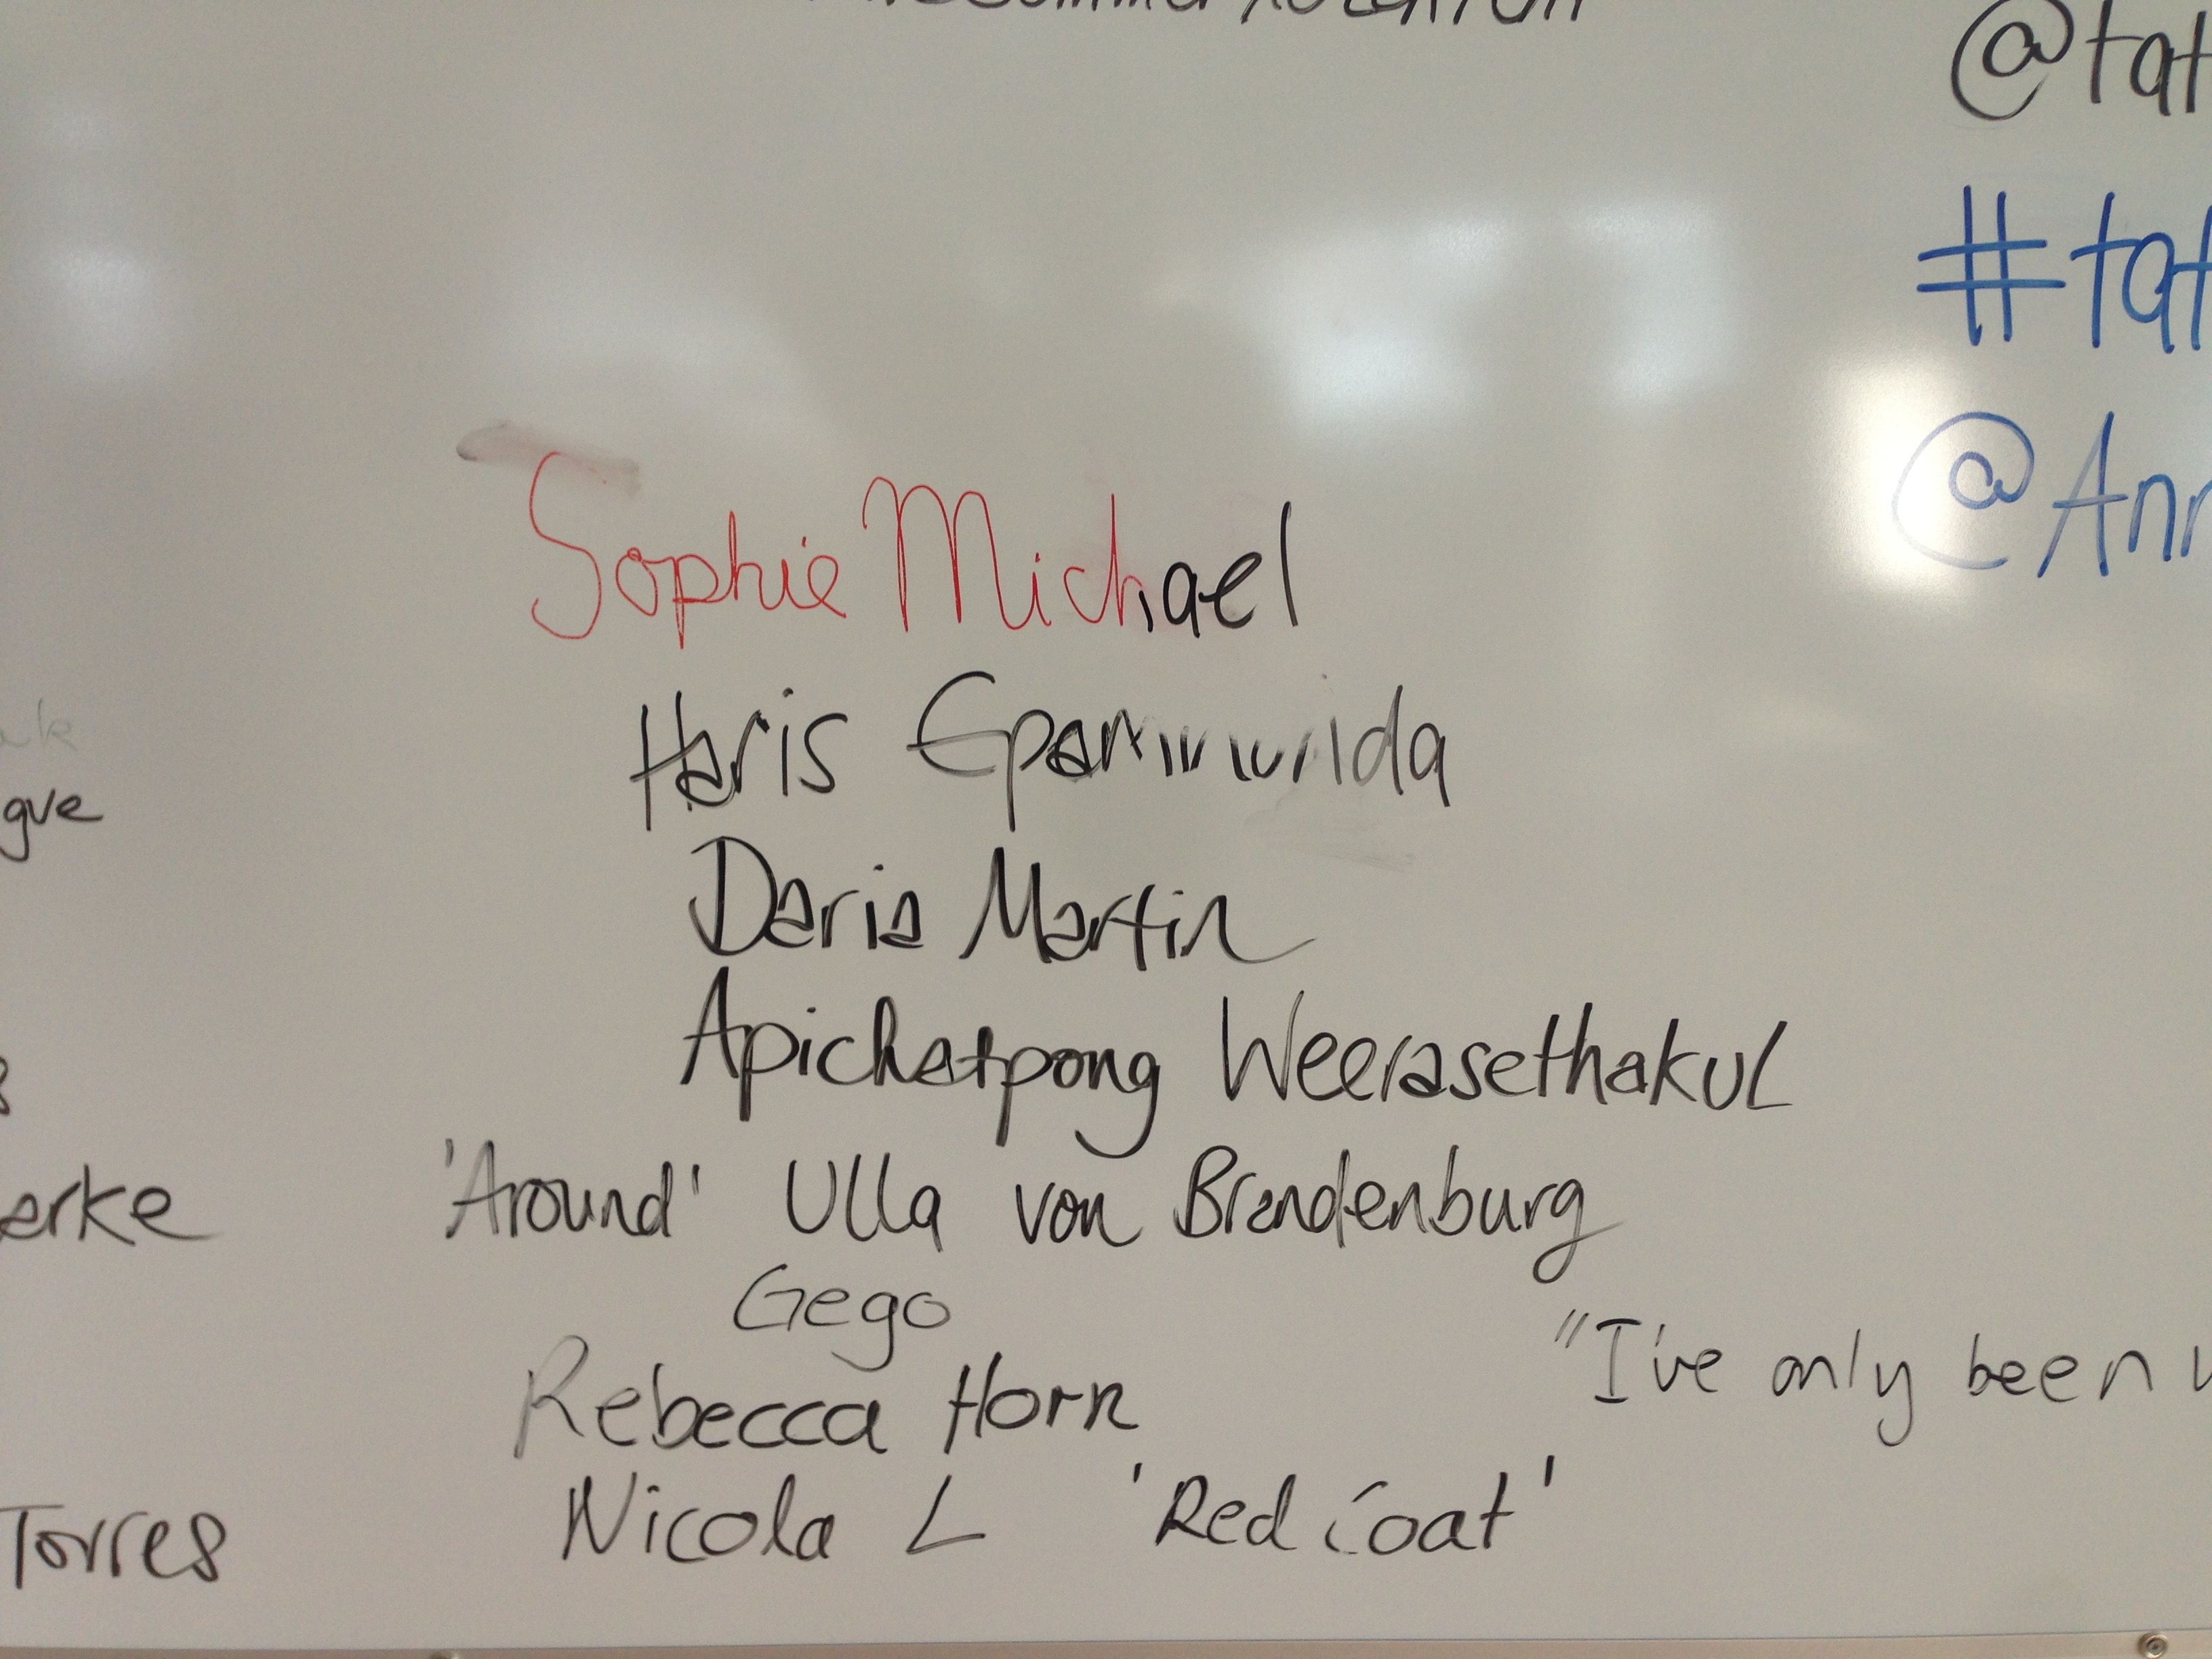 @tat
#tat
@Ann
Sophie Michael
Haris Epaminonda
Daria Martin
gue
Apichatpong Weerasethakul
erke
'Around' Ulla von Brandenburg
Gego
"I've only been
Rebecca Horn
Nicola L 'Red Coat'
Torres